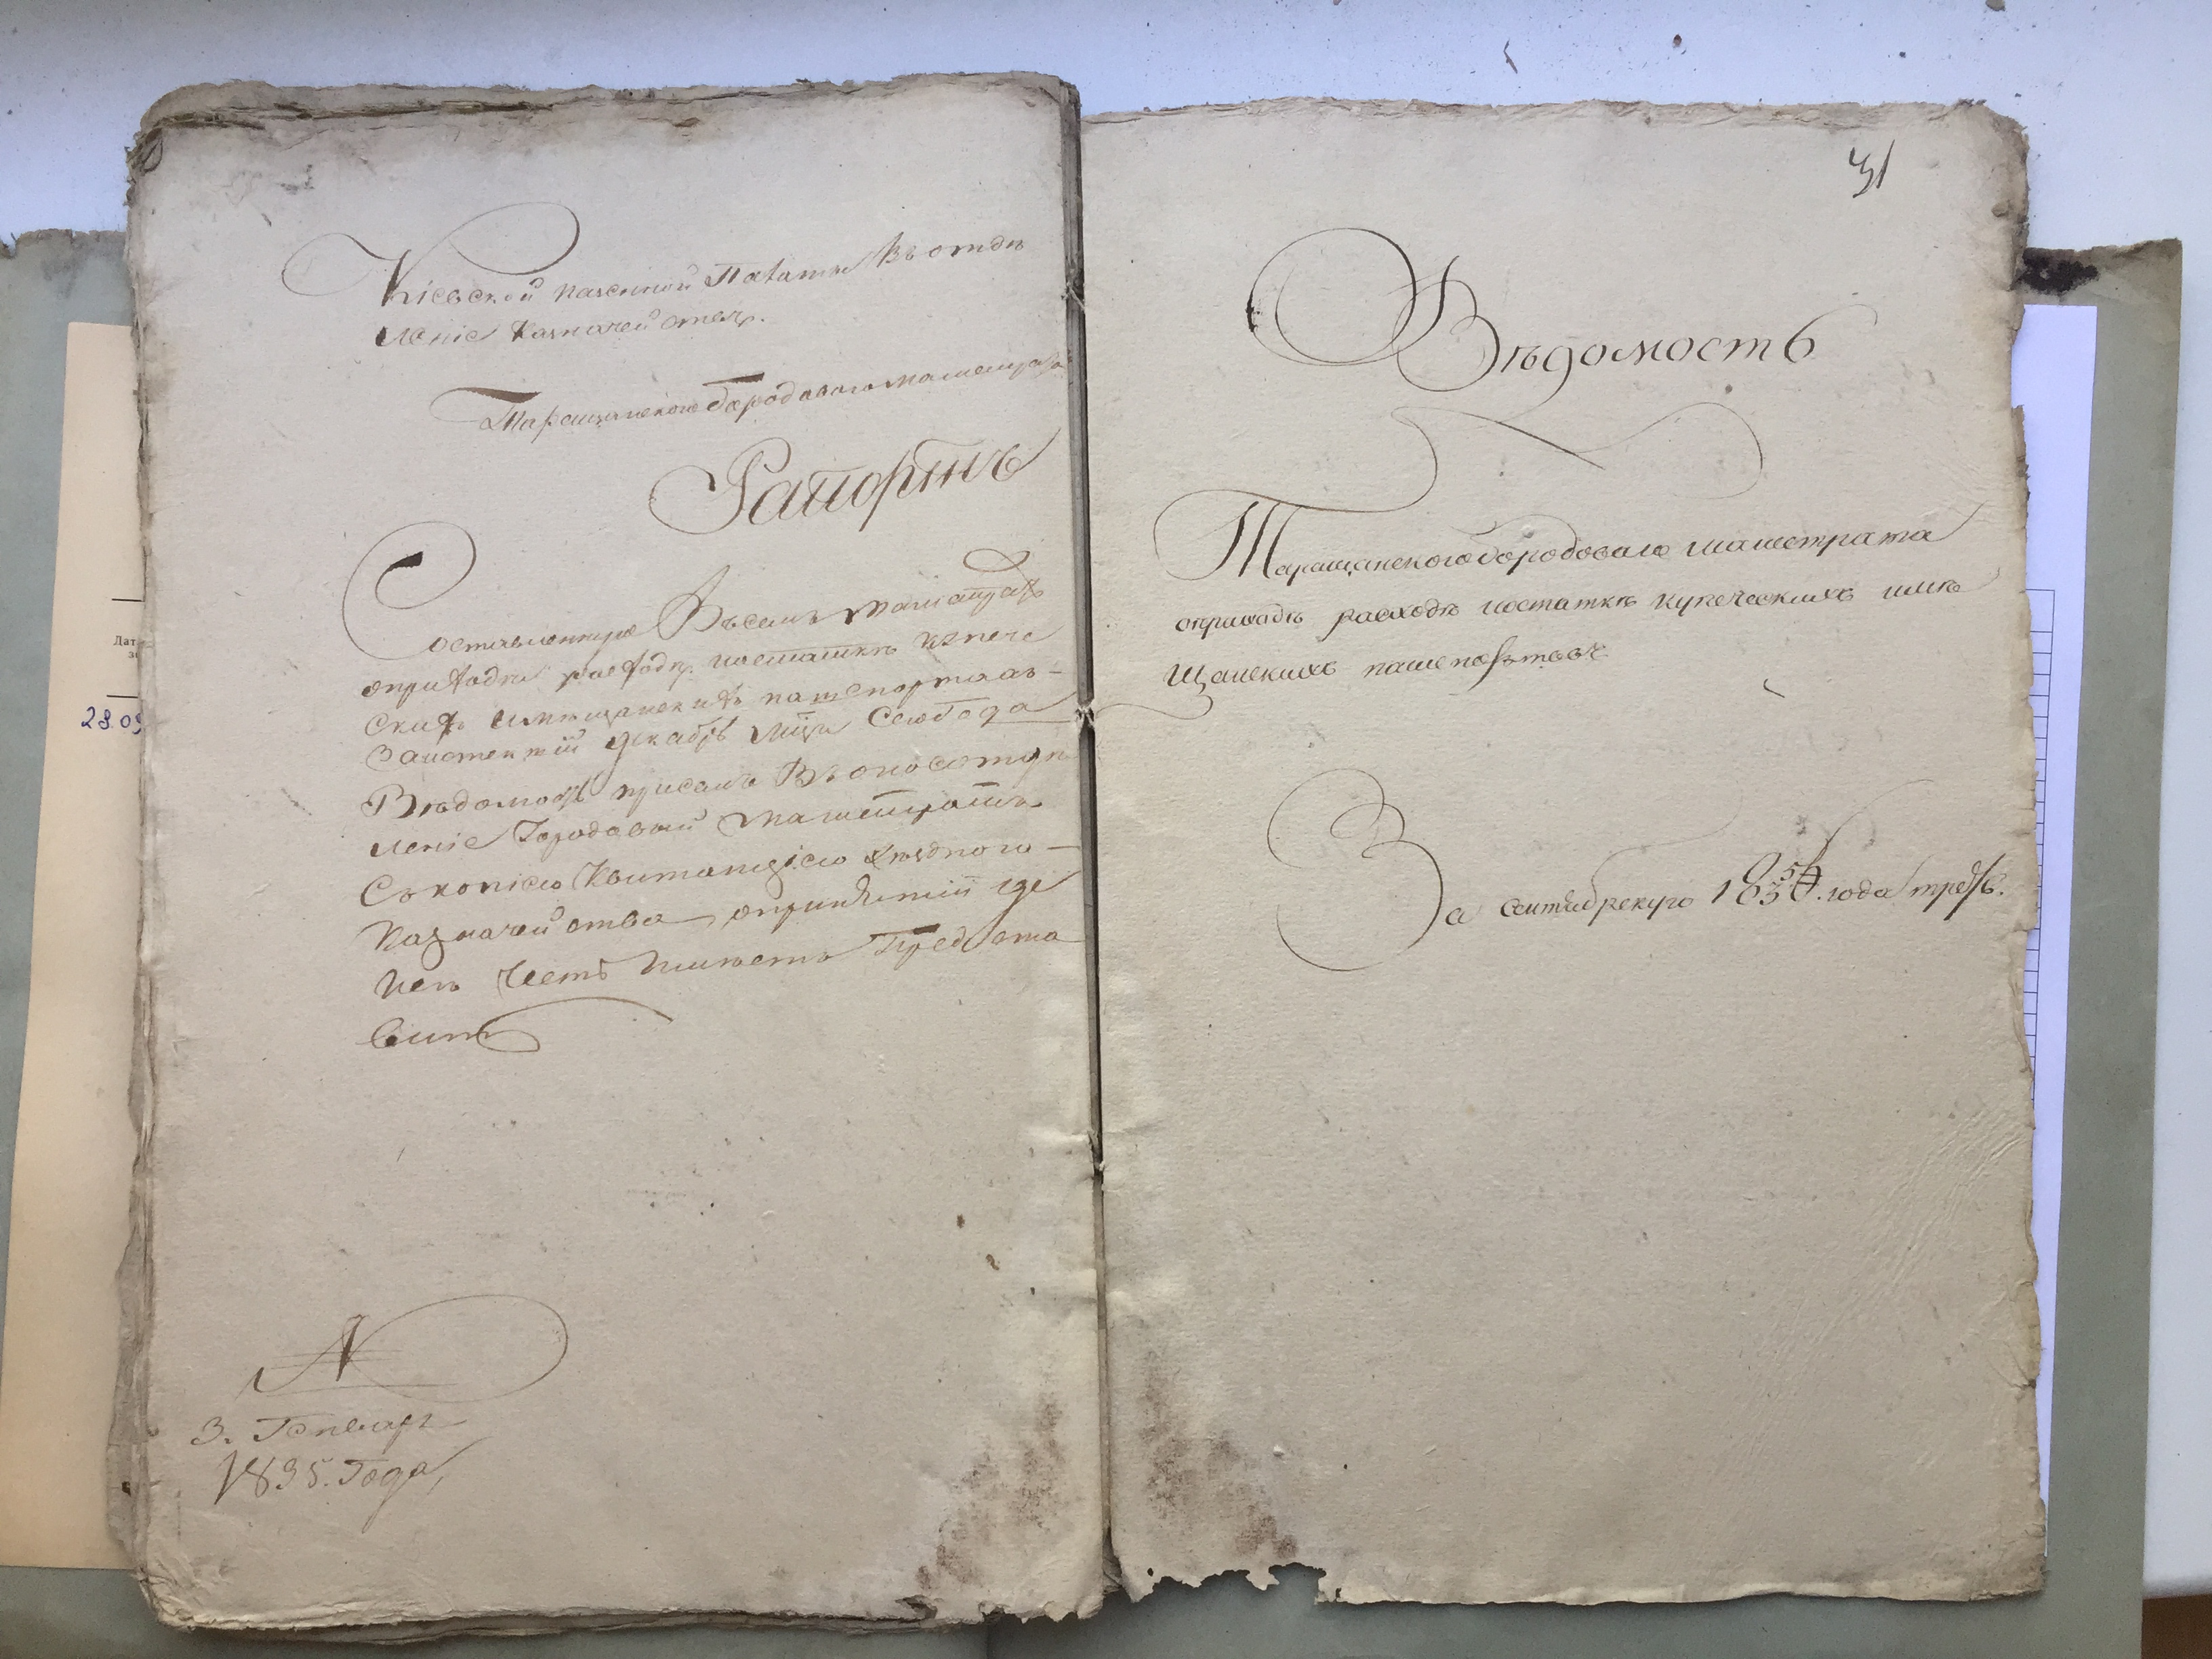 Кіевской казенной Палаты Въ отдѣ
леніе Казначействъ.
Таращанского Городоваго магистрата
Рапортъ
Составленную Въ семъ магистратѣ
оприходѣ расходѣ иостаткѣ купече
скихъ имѣщанскихъ пашпортахъ –
Заистекшій декабрь мцъ Сего года
Вѣдомость присемъ Въ оное отдѣ
леніе Городовый магистратъ
Съ копіею Квитанціею уѣзднаго –
Казначейства опринятіи де
негъ Честь Имѣетъ Предста
вить
3. Генваря
1835. Года,
31
Вѣдомость
Таращанского городоваго магистрата
оприходѣ расходѣ иостаткѣ купеческихъ имѣ
щанскихъ пашепортовъ
За сентябрскую 1834. года треть.
28.09